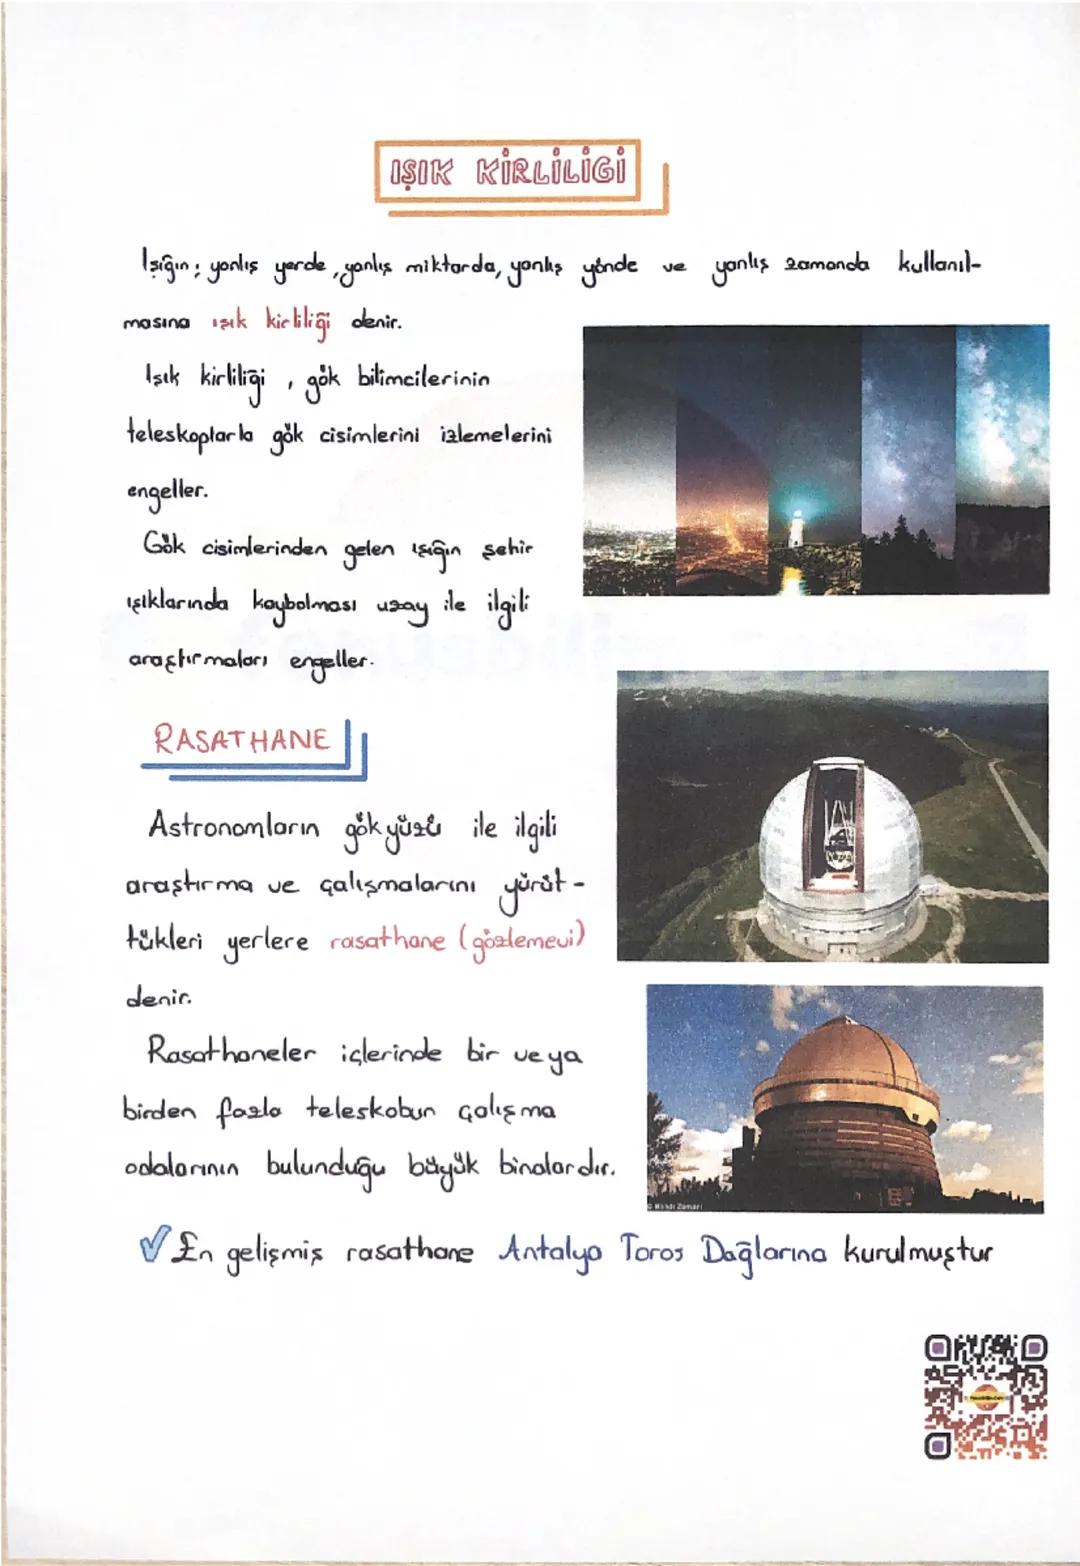 IŞIK KİRLİLİĞİ
Işığın; yanlış yerde, yanlış miktarda, yanlış yönde ve yanlış zamanda kullanıl-
masına ışık kirliliği denir.
Işık kirliliği, gök bilimcilerinin
teleskoplarla gök cisimlerini izlemelerini
engeller.
Gök cisimlerinden gelen ışığın şehir
ışıklarında kaybolması uzay ile ilgili
araştırmaları engeller.
RASATHANE
Astronomların gökyüzü ile ilgili
araştırma ve çalışmalarını yürüt-
tükleri yerlere rasathane (gözlemevi)
denir.
Rasathaneler içlerinde bir veya
birden fazla teleskobun çalışma
odalarının bulunduğu büyük binalardır.
✓ En gelişmiş rasathane Antalya Toros Dağlarına kurulmuştur